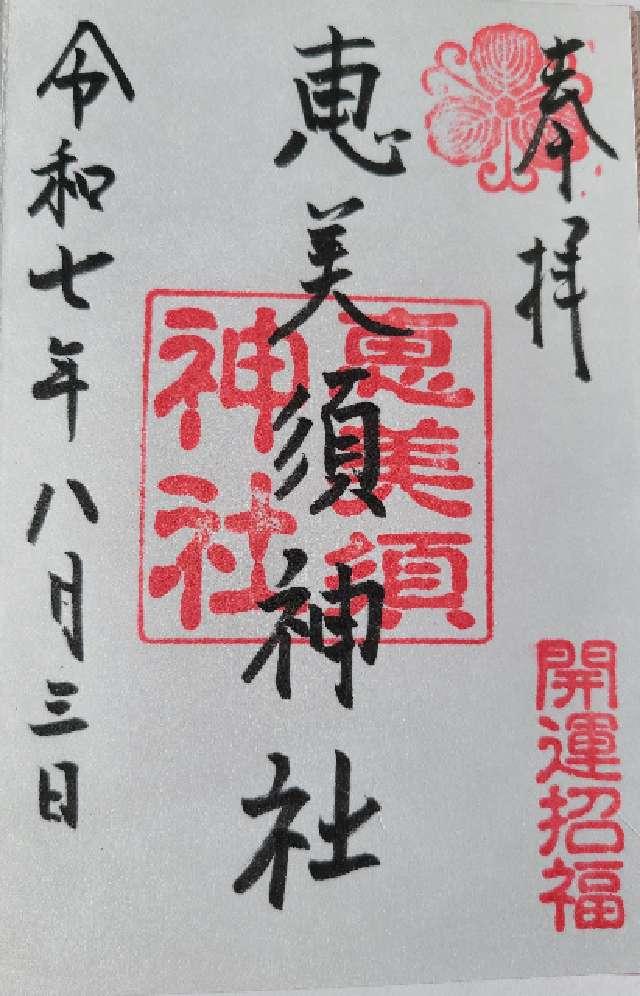 奉拝
開運招福
恵美須神社
恵美須
神社
令和七年八月三日